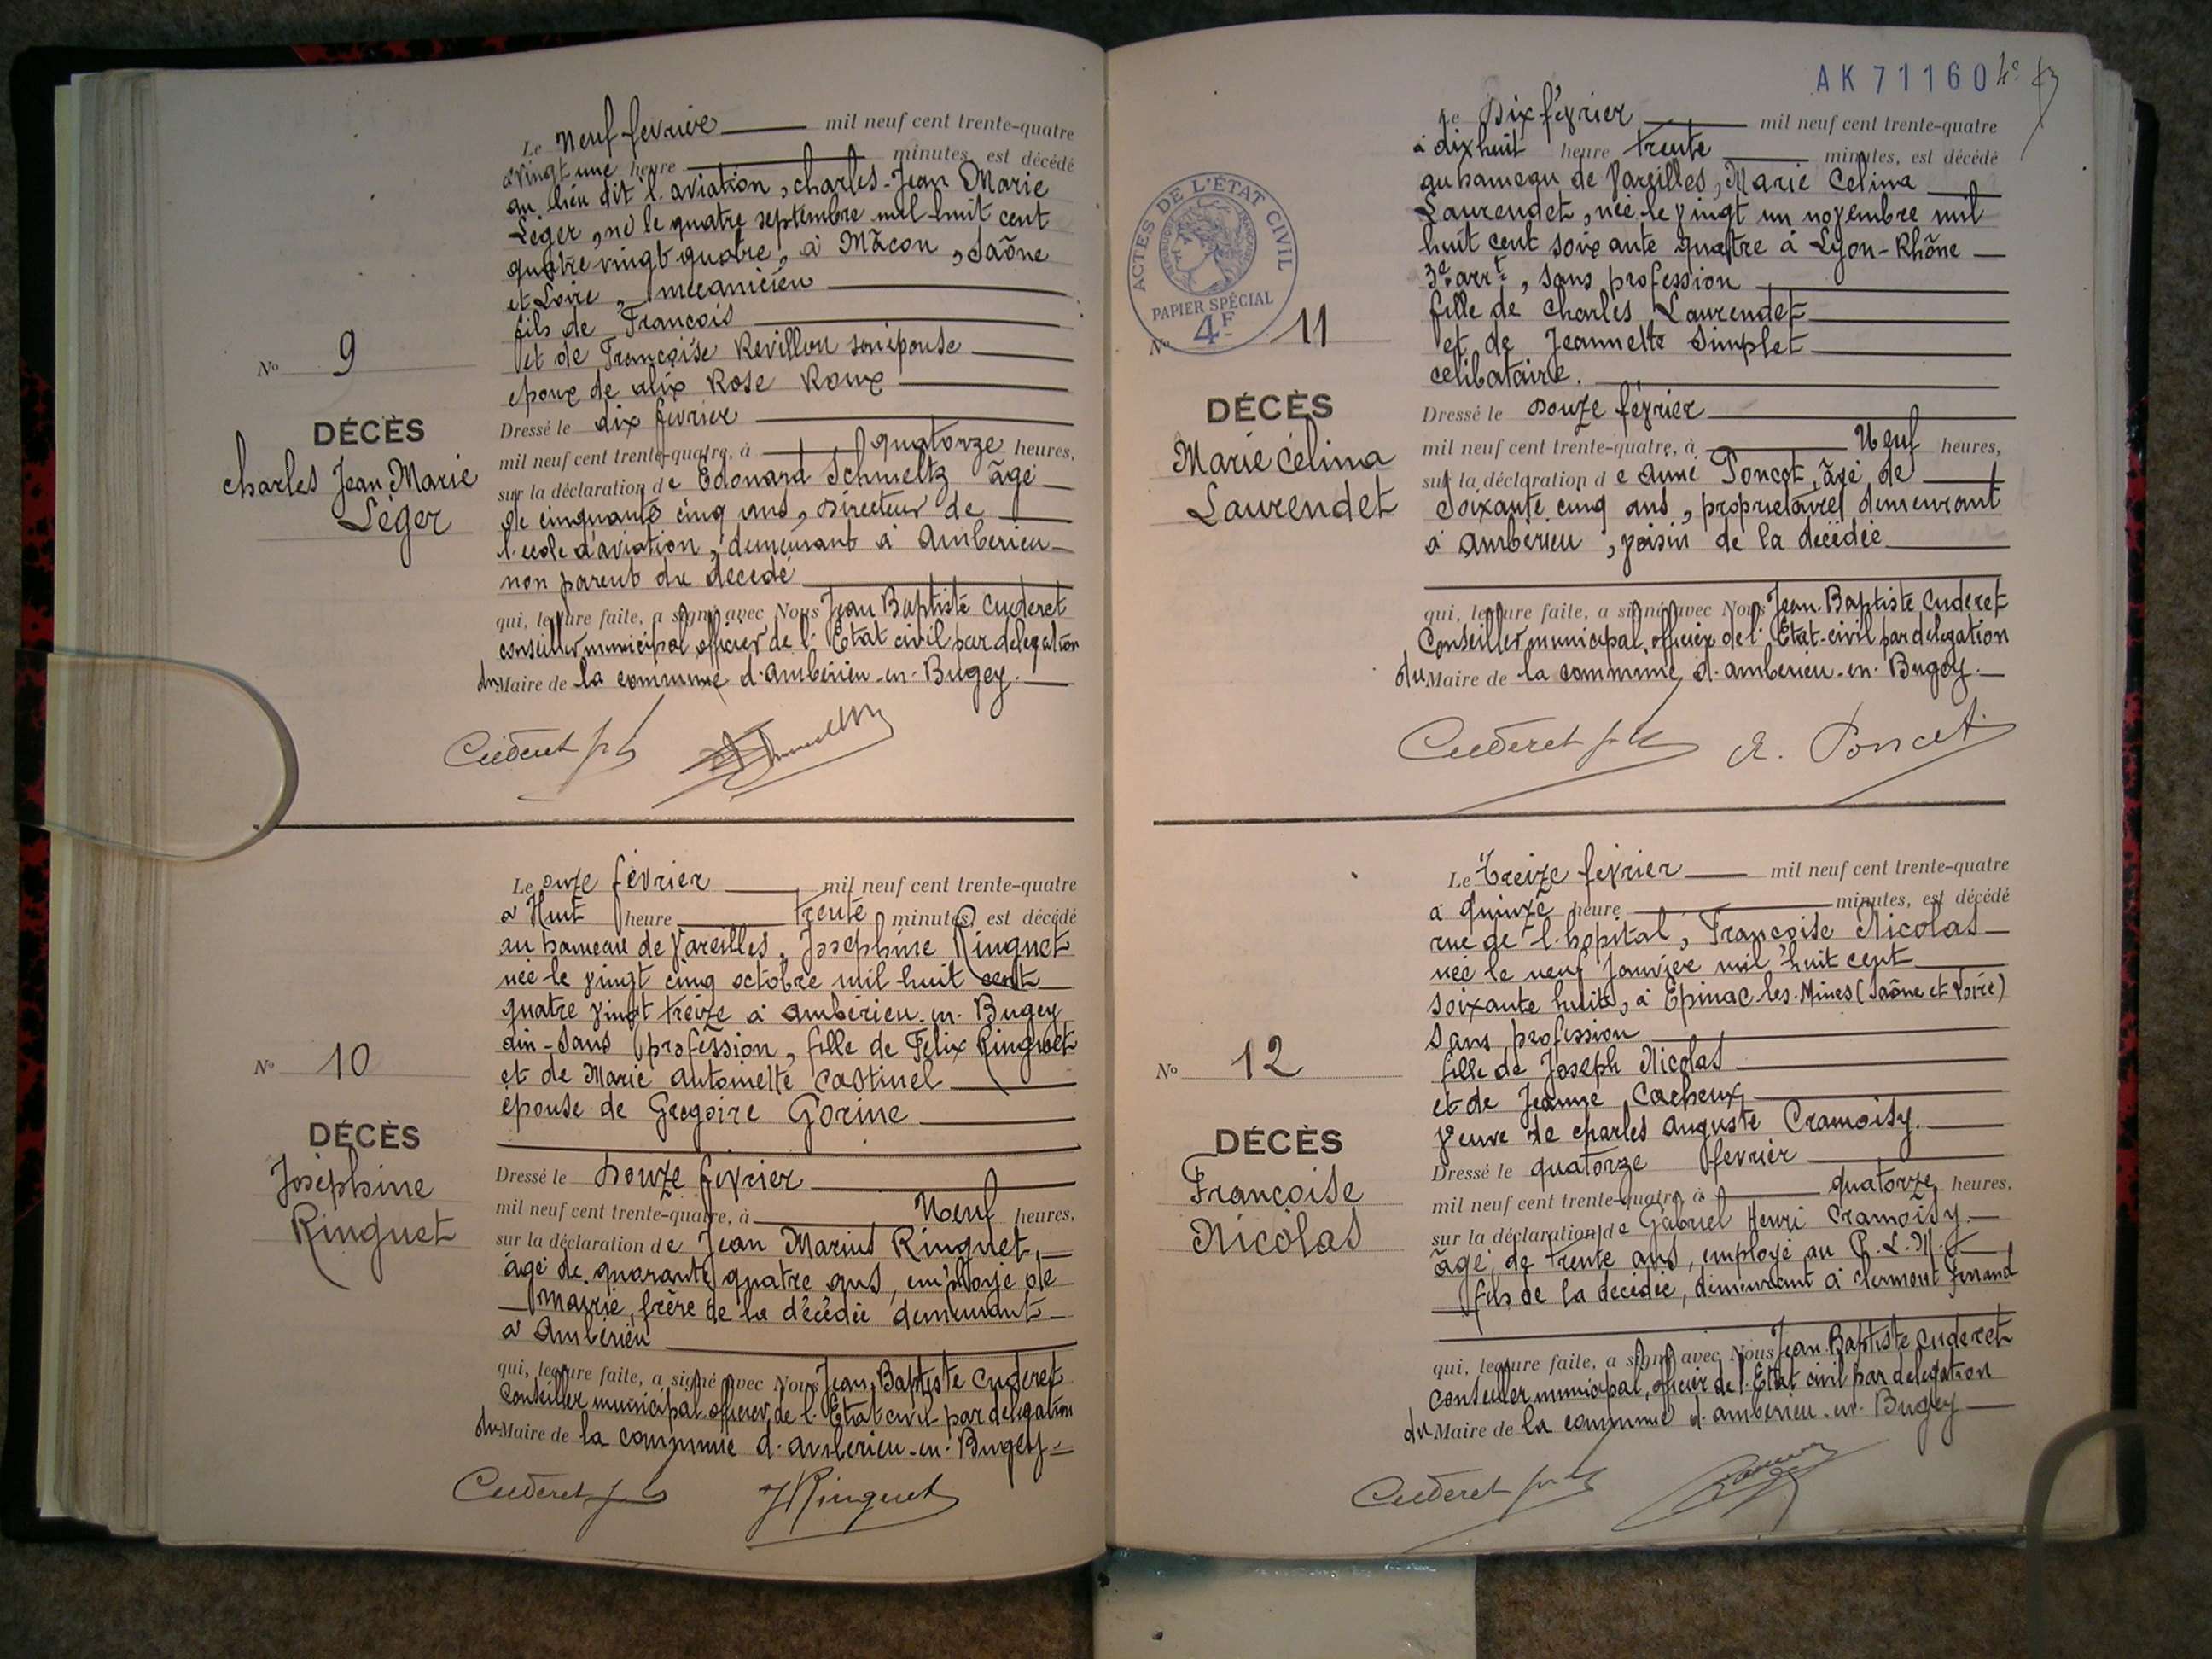 Le Neuf fevrier mil neuf cent trente-quatre
à vingt une heure minutes, est décédé
au lieu dit l'aviation, charles-Jean Marie
Léger, né le quatre septembre mil huit cent
quatre vingt quatre, à Mâcon, Saône
et Loire, mecanicien
fils de François
et de Françoise Revillon son épouse
epoux de alix Rose Roux
Dressé le dix fevrier
mil neuf cent trente-quatre, à quatorze heures,
sur la déclaration de Edouard Schmeltz âgé
de cinquante cinq ans, Directeur de
l'ecole d'aviation, demeurant à Ambérieu
non parent du décédé
qui, lecture faite, a signé avec Nous Jean Baptiste Cuderet
conseiller municipal officier de l'Etat civil par delegation
du Maire de la commune d'ambérieu-en-Bugey.
N° 9
DÉCÈS
charles Jean Marie
Léger
Cuderet
Le onze février mil neuf cent trente-quatre
à Huit heure trente minutes, est décédé
au hameau de Vareilles, Josephine Ringuet
née le vingt cinq octobre mil huit cent
quatre vingt treize à ambérieu-en-Bugey
ain-Sans profession, fille de Felix Ringuet
et de Marie antoinette Castinel
épouse de Gregoire Gorine
Dressé le Douze fevrier
mil neuf cent trente-quatre, à Neuf heures,
sur la déclaration de Jean Marius Ringuet,
âgé de quarante quatre ans, employé de
Mairie, frère de la décédée demeurant
à Ambérieu
qui, lecture faite, a signé avec Nous Jean Baptiste Cuderet
Conseiller municipal officier de l'Etat civil par delegation
du Maire de la commune d'amberieu-en-Bugey
N° 10
DÉCÈS
Joséphine
Ringuet
Cuderet JRinguet
AK 71160
Le Dix février mil neuf cent trente-quatre
à dix huit heure trente minutes, est décédé
au hameau de Vareilles, Marie Celina
Laurendet, née le vingt un novembre mil
huit cent soixante quatre à Lyon-Rhône
3e arrt, sans profession
fille de Charles Laurendet
et de Jeannette Simplet
célibataire.
Dressé le Douze février
mil neuf cent trente-quatre, à Neuf heures,
sur la déclaration de aimé Poncet, âgé de
Soixante cinq ans, proprietaire demeurant
à ambérieu, voisin de la décédée
qui, lecture faite, a signé avec Nous Jean-Baptiste Cuderet
Conseiller municipal, officier de l'Etat-civil par delegation
du Maire de la commune d'amberieu-en-Bugey.
ACTES DE L'ÉTAT CIVIL
PAPIER SPÉCIAL
4F
N° 11
DÉCÈS
Marie Célina
Laurendet
Cuderet A. Poncet
Le Treize février mil neuf cent trente-quatre
à quinze heure minutes, est décédé
rue de l'hopital, Françoise Nicolas
née le neuf Janvier mil huit cent
soixante huit, à Epinac-les-Mines (Saône et Loire)
sans profession
fille de Joseph Nicolas
et de Jeanne Cacheux
veuve de charles auguste Cramoisy.
Dressé le quatorze fevrier
mil neuf cent trente-quatre, à quatorze heures,
sur la déclaration de Gabriel Henri Cramoisy
âgé de trente ans, employé au P.L.M.
fils de la décédée, demeurant à clermont ferrand
qui, lecture faite, a signé avec Nous Jean-Baptiste Cuderet
Conseiller municipal, officier de l'Etat civil par delegation
du Maire de la commune d'amberieu-en-Bugey
N° 12
DÉCÈS
Françoise
Nicolas
Cuderet